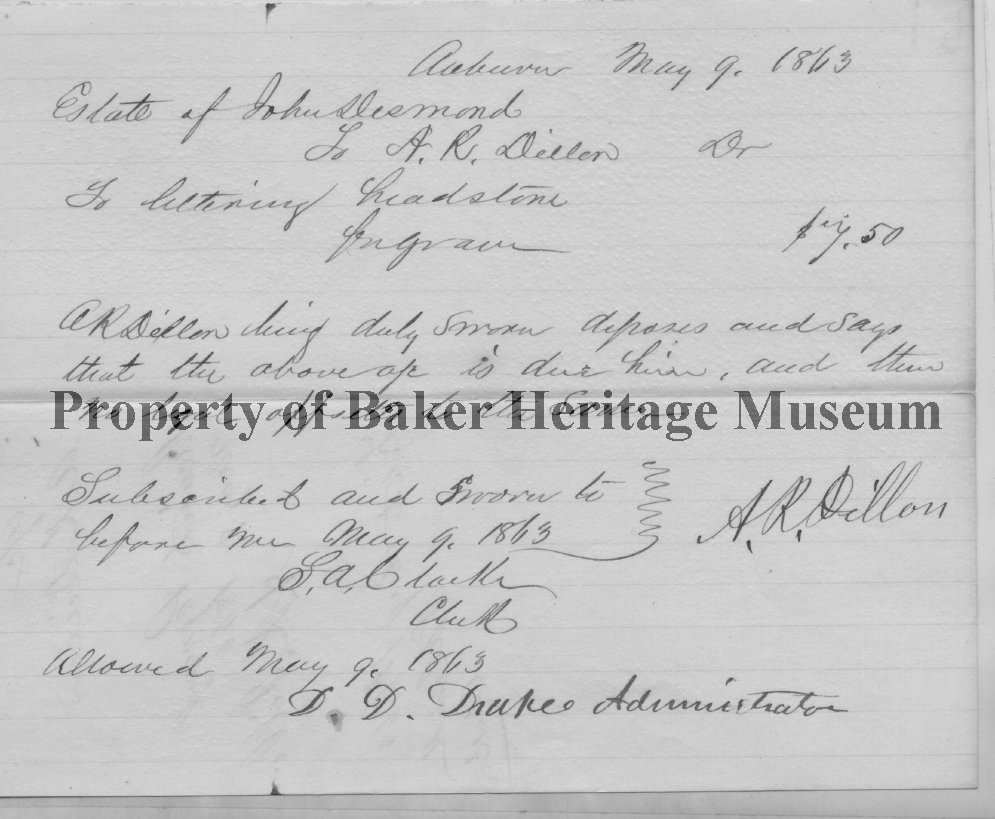 Auburn May 9. 1863
Estate of John Desmond
To A. R. Dillon Dr
To lettering headstone
for grave $17.50
A R Dillon being duly sworn deposes and says
that the above a/c is due him, and then
no legal offsets to the same
Property of Baker Heritage Museum
Subscribed and sworn to
before me May 9. 1863
A. R. Dillon
S. A. Clarke
Clerk
Allowed May 9. 1863
D. D. Drake Administrator